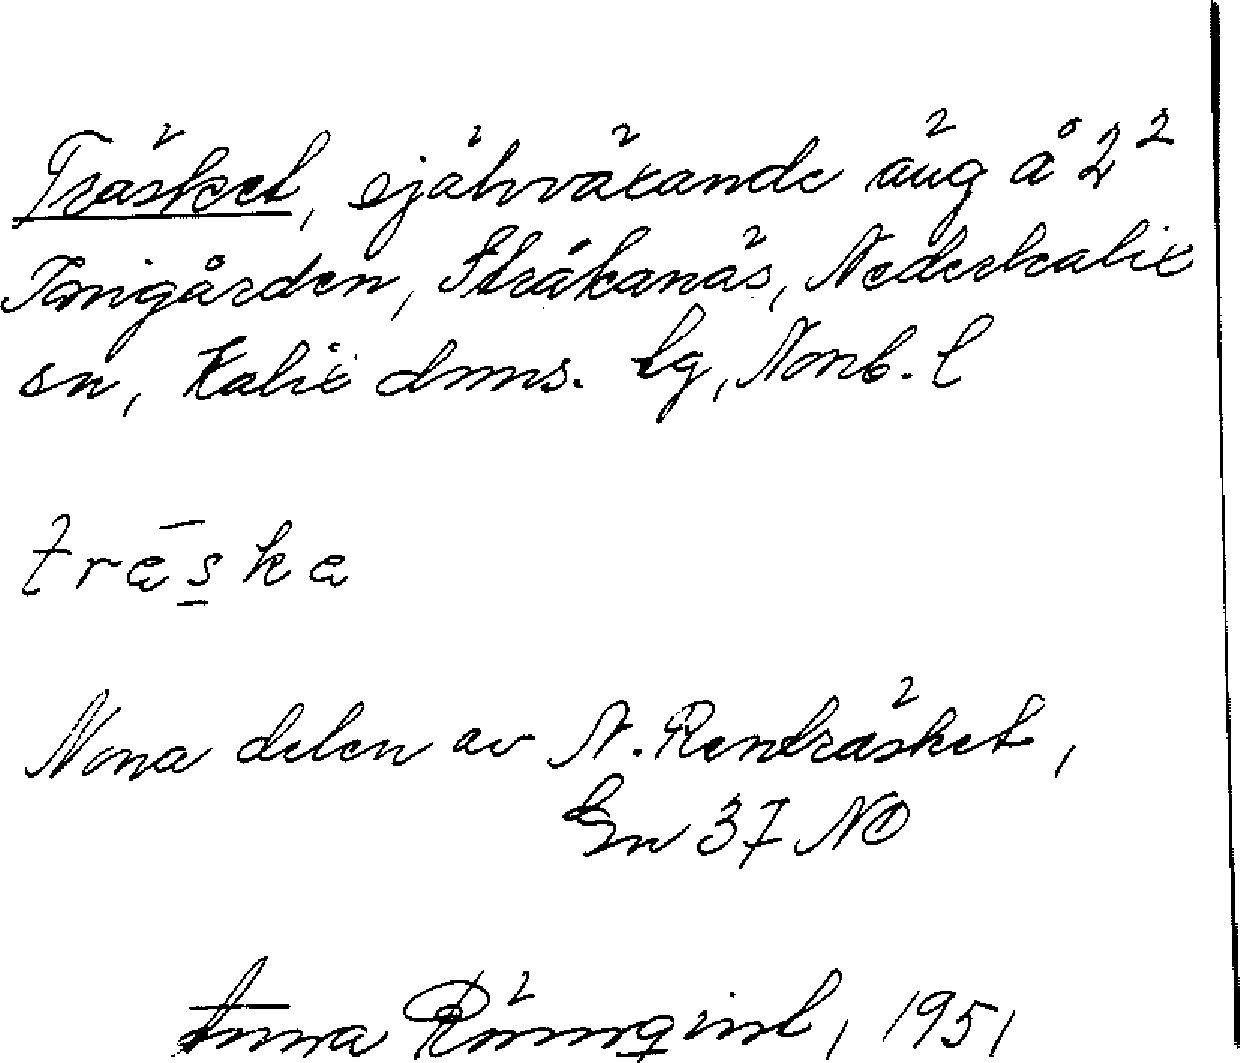 Träsket, självväxande äng å 2²
Tomigården, Stråkanäs, Nederkalix
sn, Kalix dmns. tg, Norrb. l
träska
Norra delen av N. Renträsket,
Gn 37 NO
Anna Rönnqvist, 1951